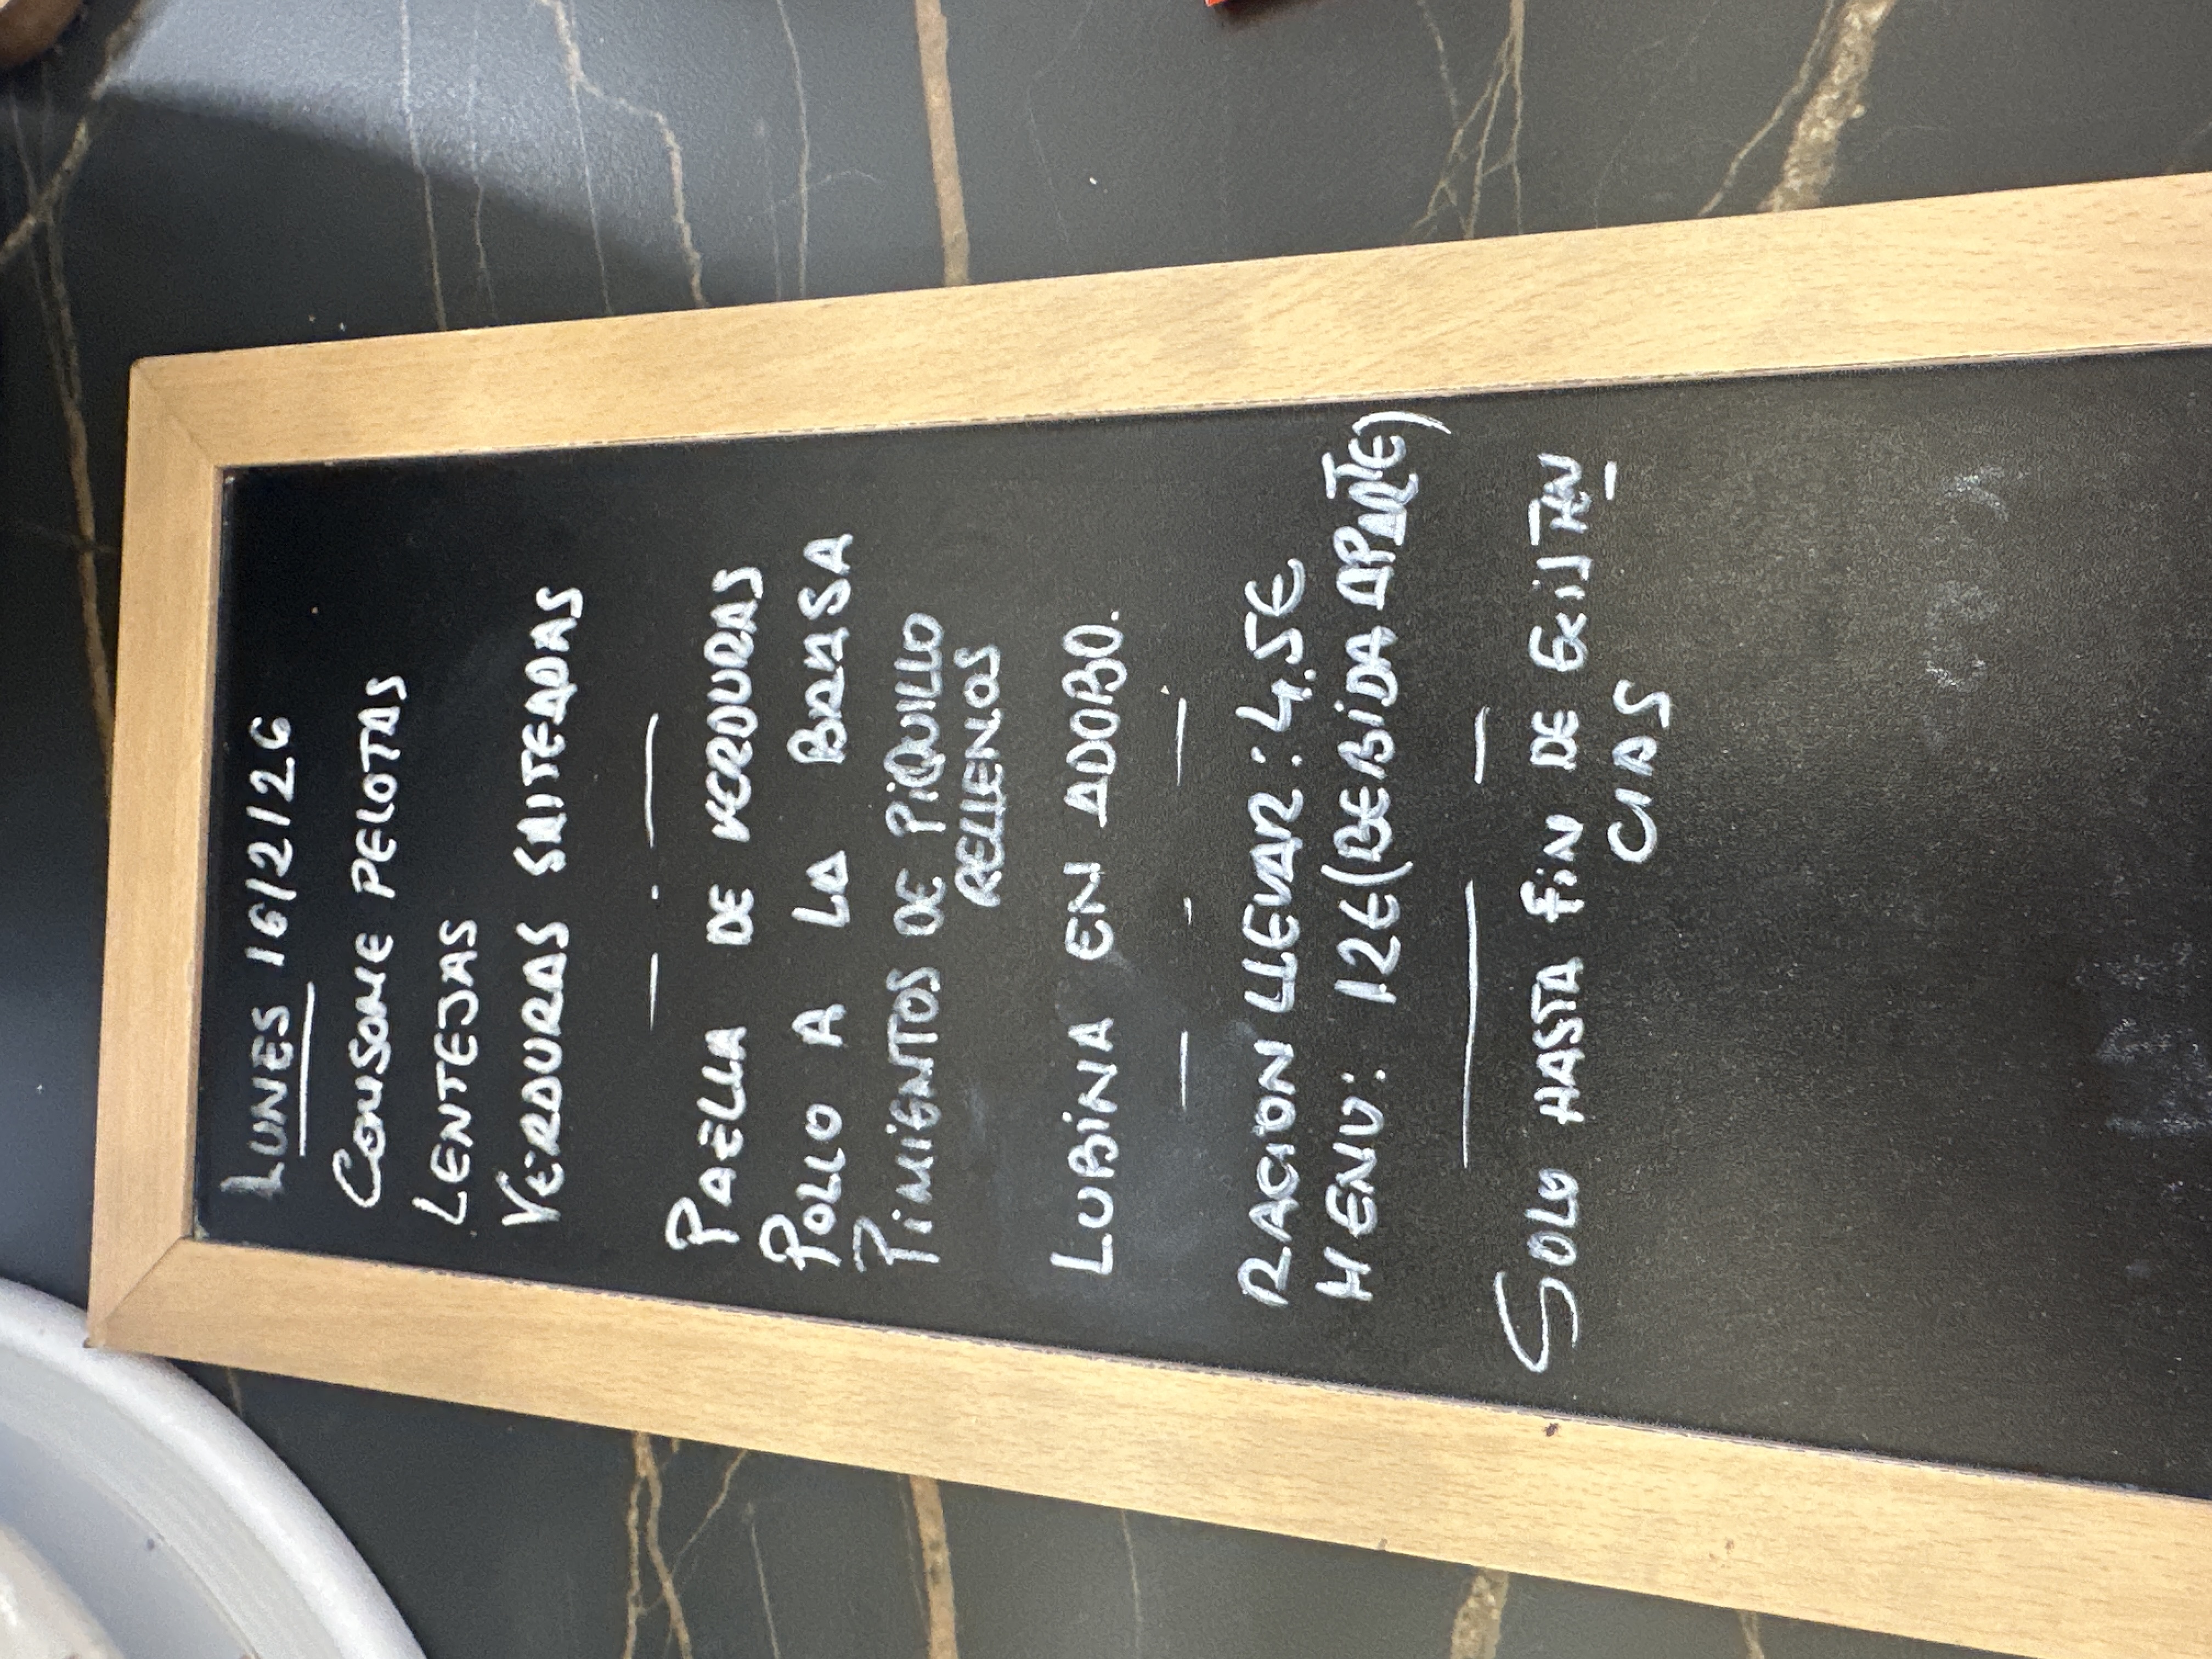 LUNES 16/2/26
CONSOME PELOTAS
LENTEJAS
VERDURAS SALTEADAS
PAELLA DE VERDURAS
POLLO A LA BRASA
PIMIENTOS DE PIQUILLO
RELLENOS
LUBINA EN ADOBO.
RACION LLEVAR: 4.5€
MENU: 12€ (BEBIDA APARTE)
SOLO HASTA FIN DE EXISTEN
CIAS